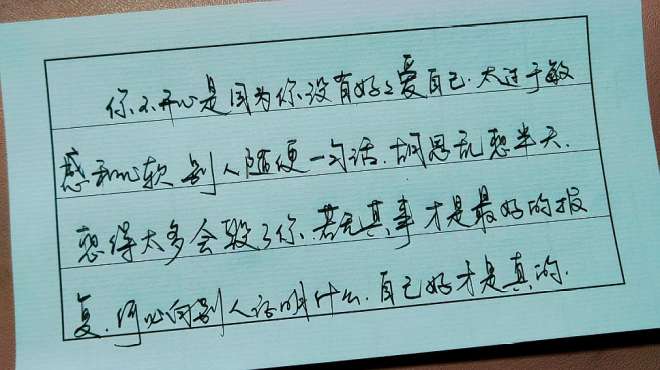 你不开心是因为你没有好々爱自己.太过于敏
感和心软 别人随便一句话.胡思乱想半天.
想得太多会毁了你.若无其事 才是最好的报
复.何必向别人证明什么.自己好才是真的.